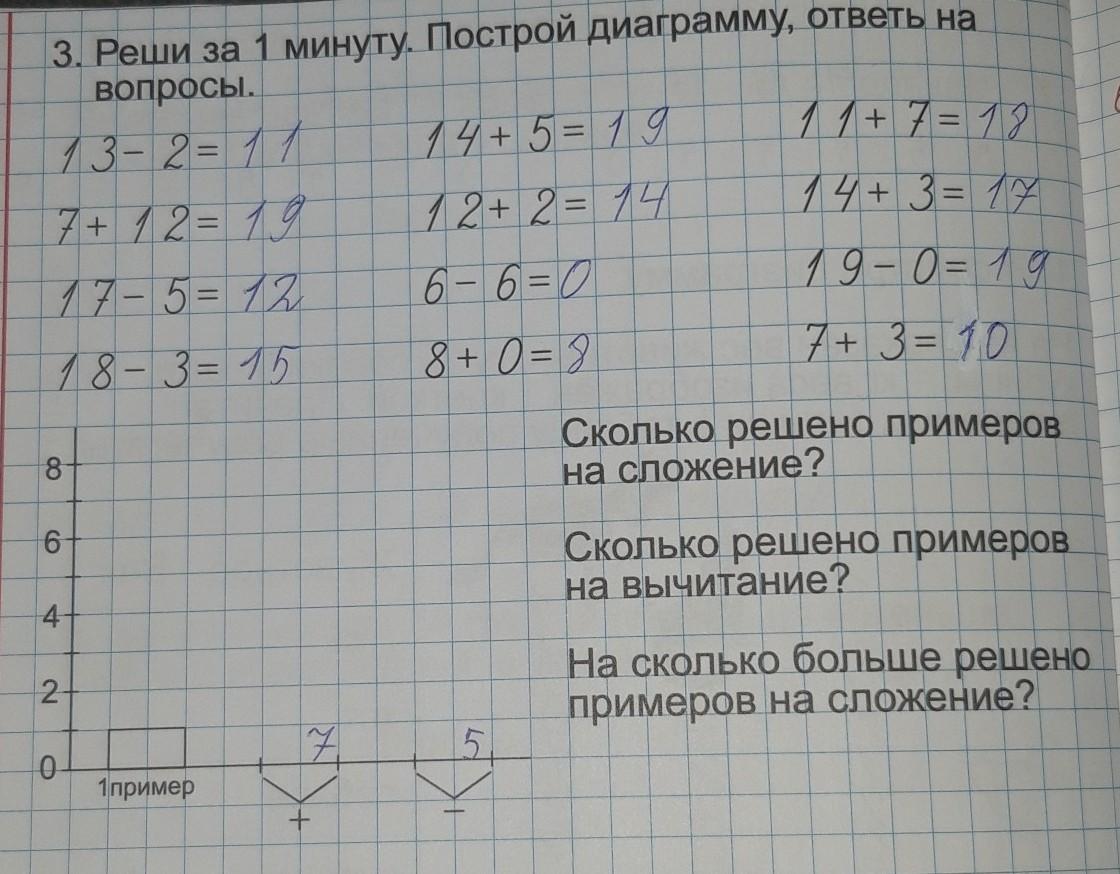 3. Реши за 1 минуту. Построй диаграмму, ответь на
вопросы.
13 - 2 = 11
7 + 12 = 19
17 - 5 = 12
18 - 3 = 15
14 + 5 = 19
12 + 2 = 14
6 - 6 = 0
8 + 0 = 8
11 + 7 = 18
14 + 3 = 17
19 - 0 = 19
7 + 3 = 10
8
6
4
2
0
1 пример
7
+
5
−
Сколько решено примеров
на сложение?
Сколько решено примеров
на вычитание?
На сколько больше решено
примеров на сложение?